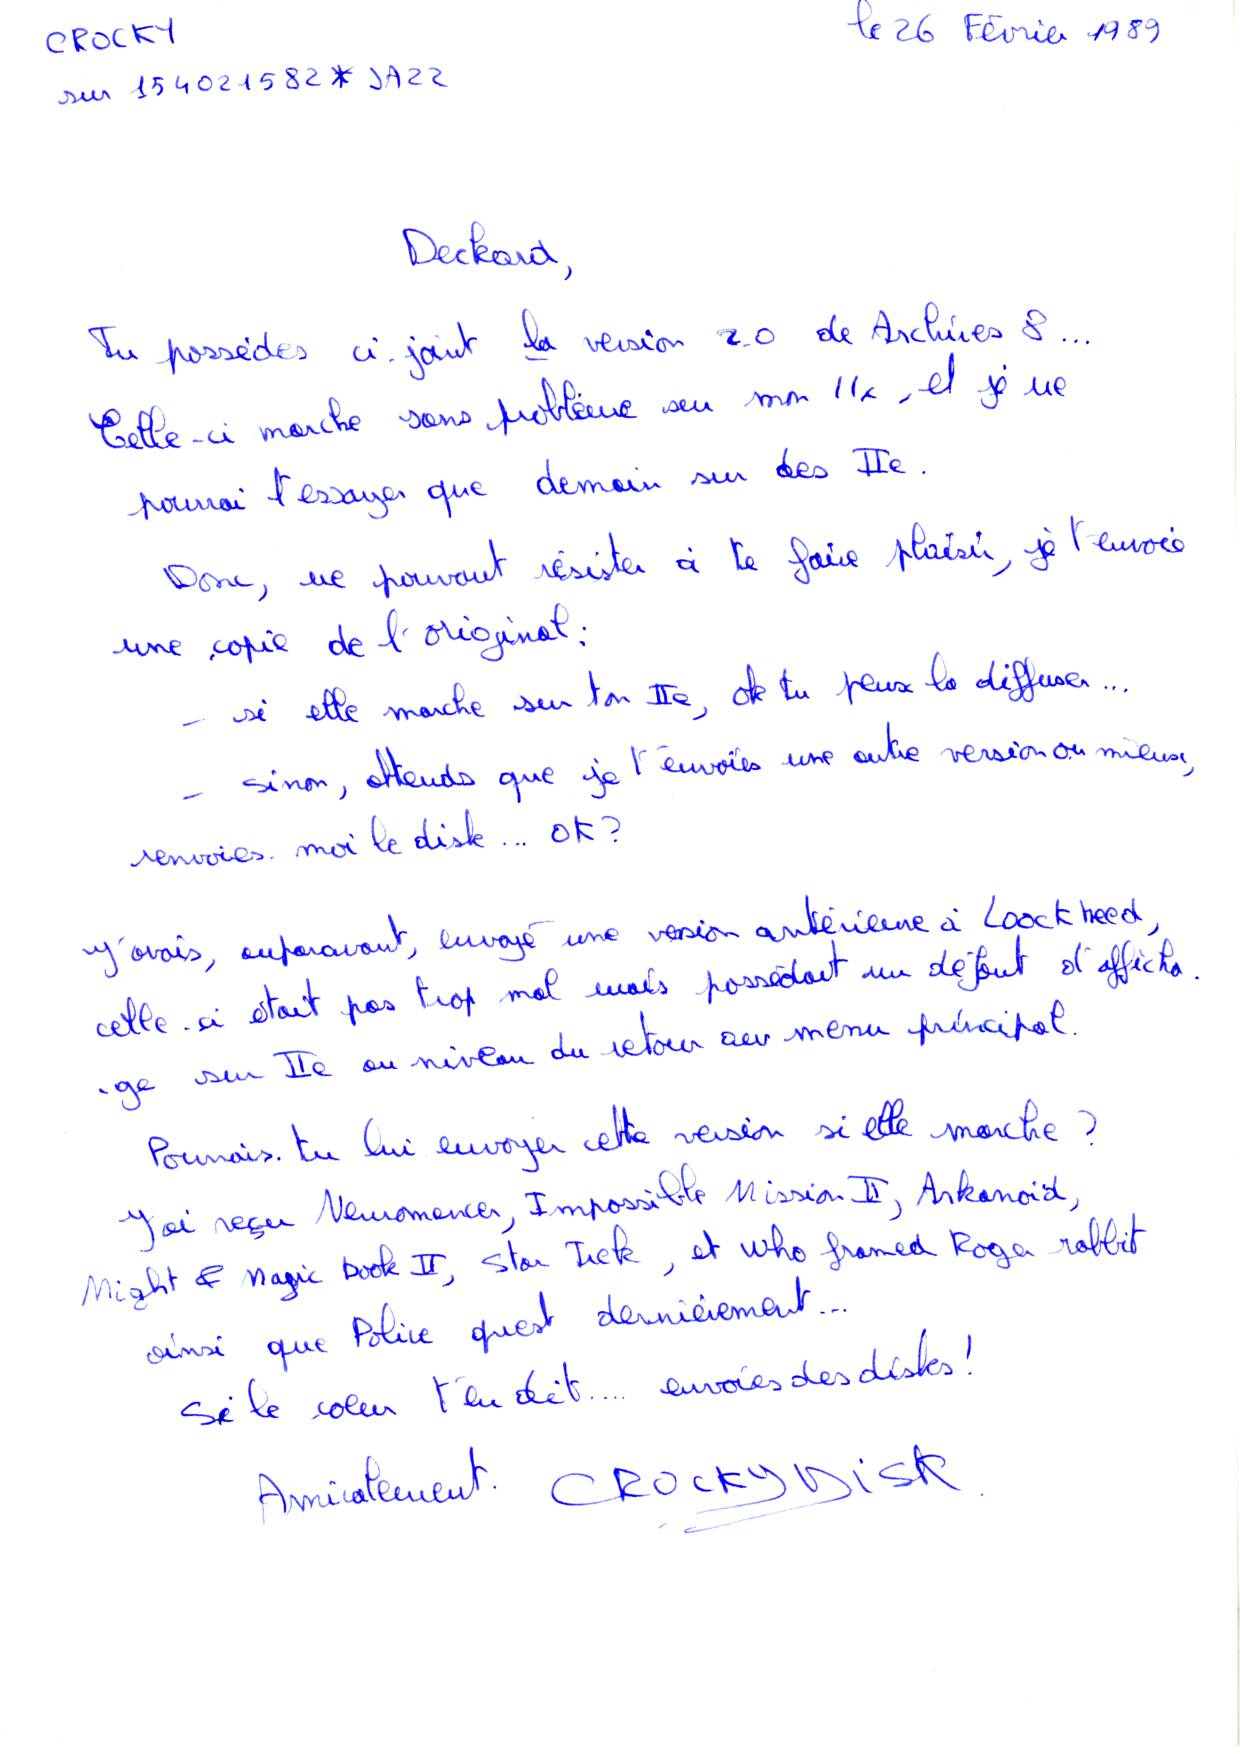 CROCKY
le 26 Février 1989
sur 154021582*JAZZ
Deckard,
Tu possèdes ci-joint la version 2.0 de Archives 8...
Celle-ci marche sans problème sur mon IIx, et je ne
pourrai l'essayer que demain sur des IIe.
Donc, ne pouvant résister à te faire plaisir, je t'envoie
une copie de l'original:
- si elle marche sur ton IIe, ok tu peux la diffuser...
- sinon, attends que je t'envoies une autre version ou mieux,
renvoies-moi le disk... OK?
J'avais, auparavant, envoyé une version antérieure à Loockheed,
celle-ci était pas trop mal mais possédait un défaut d'afficha-
-ge sur IIe au niveau du retour au menu principal.
Pourrais-tu lui envoyer cette version si elle marche?
J'ai reçu Neuromancer, Impossible Mission II, Arkanoid,
Might & Magic book II, Star Treck, et who framed Roger rabbit
ainsi que Police quest dernièrement...
Si le coeur t'en dit.... envoies des disks!
Amicalement. CROCKYDISK